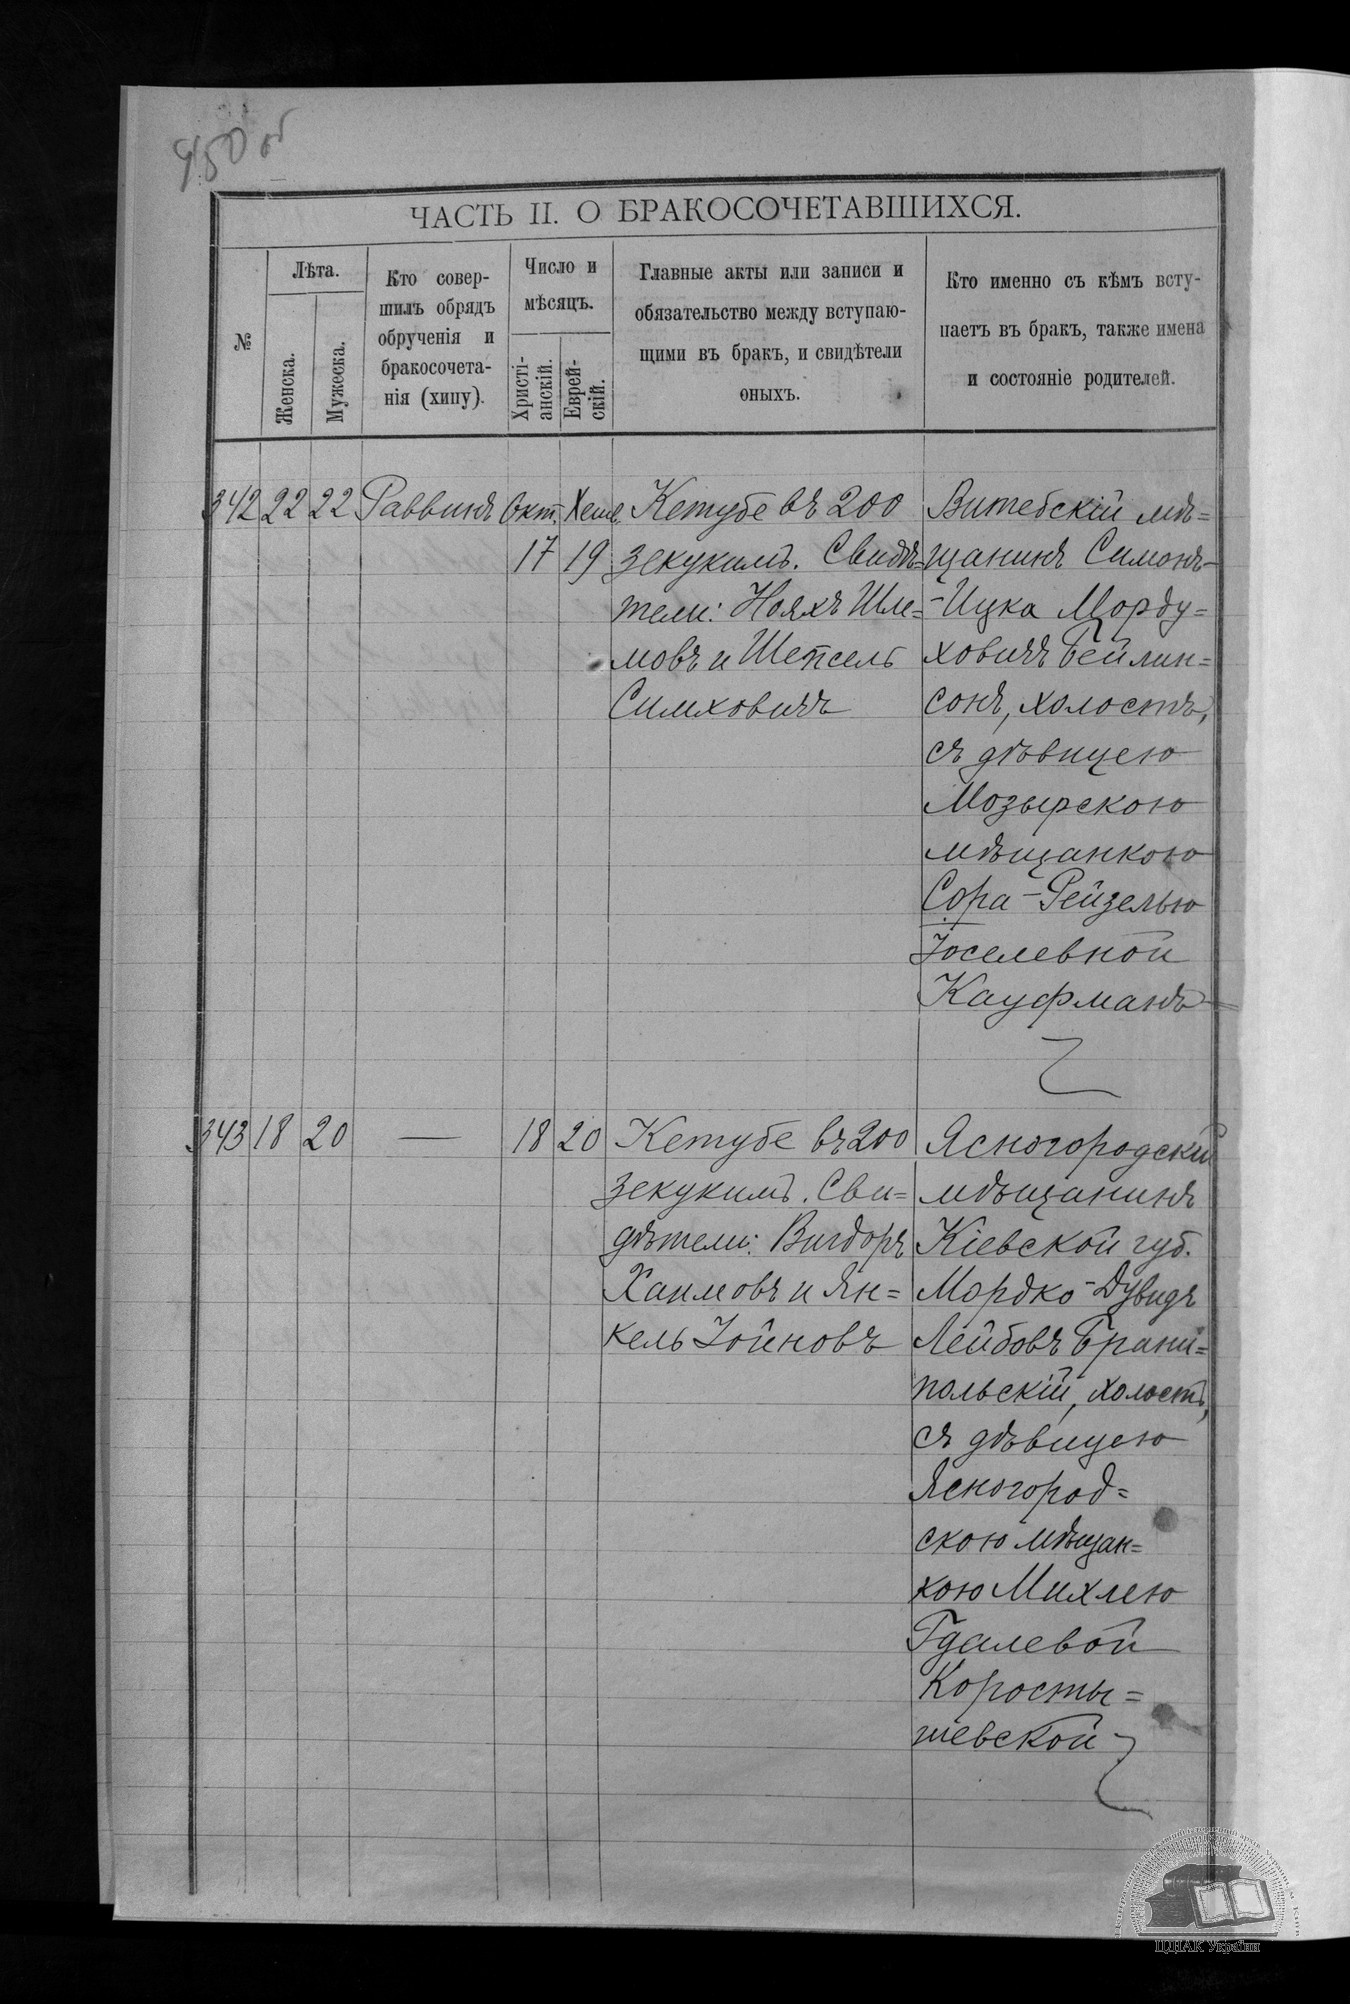 450 об
ЧАСТЬ II. О БРАКОСОЧЕТАВШИХСЯ.
№
Лѣта.
Женска.
Мужеска.
Кто совер-
шилъ обрядъ
обрученія и
бракосочета-
нія (хипу).
Число и
мѣсяцъ.
Христі-
анскій.
Еврей-
скій.
Главные акты или записи и
обязательство между вступаю-
щими въ бракъ, и свидѣтели
оныхъ.
Кто именно съ кѣмъ всту-
паетъ въ бракъ, также имена
и состояніе родителей.
342 22 22 Раввинъ Окт. Хешв.
17 19
Кетубе въ 200
зекукимъ. Свидѣ=
тели: Нояхъ Шле=
мовъ и Шепсель
Симховичъ
Витебскій мѣ=
щанинъ Симонъ-
-Ицка Морду=
ховичъ Бейлин=
сонъ, холостъ,
съ дѣвицею
Мозырскою
мѣщанкою
Сора-Рейзелью
Іоселевной
Кауфманъ
343 18 20 — 18 20
Кетубе въ 200
зекукимъ. Сви=
дѣтели: Вигдоръ
Хаимовъ и Ян=
кель Іойновъ
Ясногородскій
мѣщанинъ
Кіевской губ.
Мордко-Дувидъ
Лейбовъ Брани=
польскій, холостъ,
съ дѣвицею
Ясногород=
скою мѣщан=
кою Михлею
Гдалевой
Коросты=
шевской
ЦДІАК України